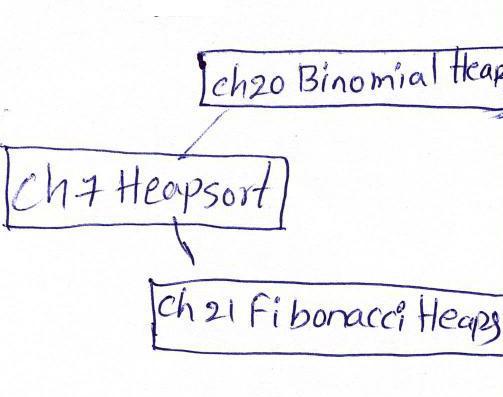 ch20 Binomial Heap
Ch 7 Heapsort
Ch 21 Fibonacci Heaps